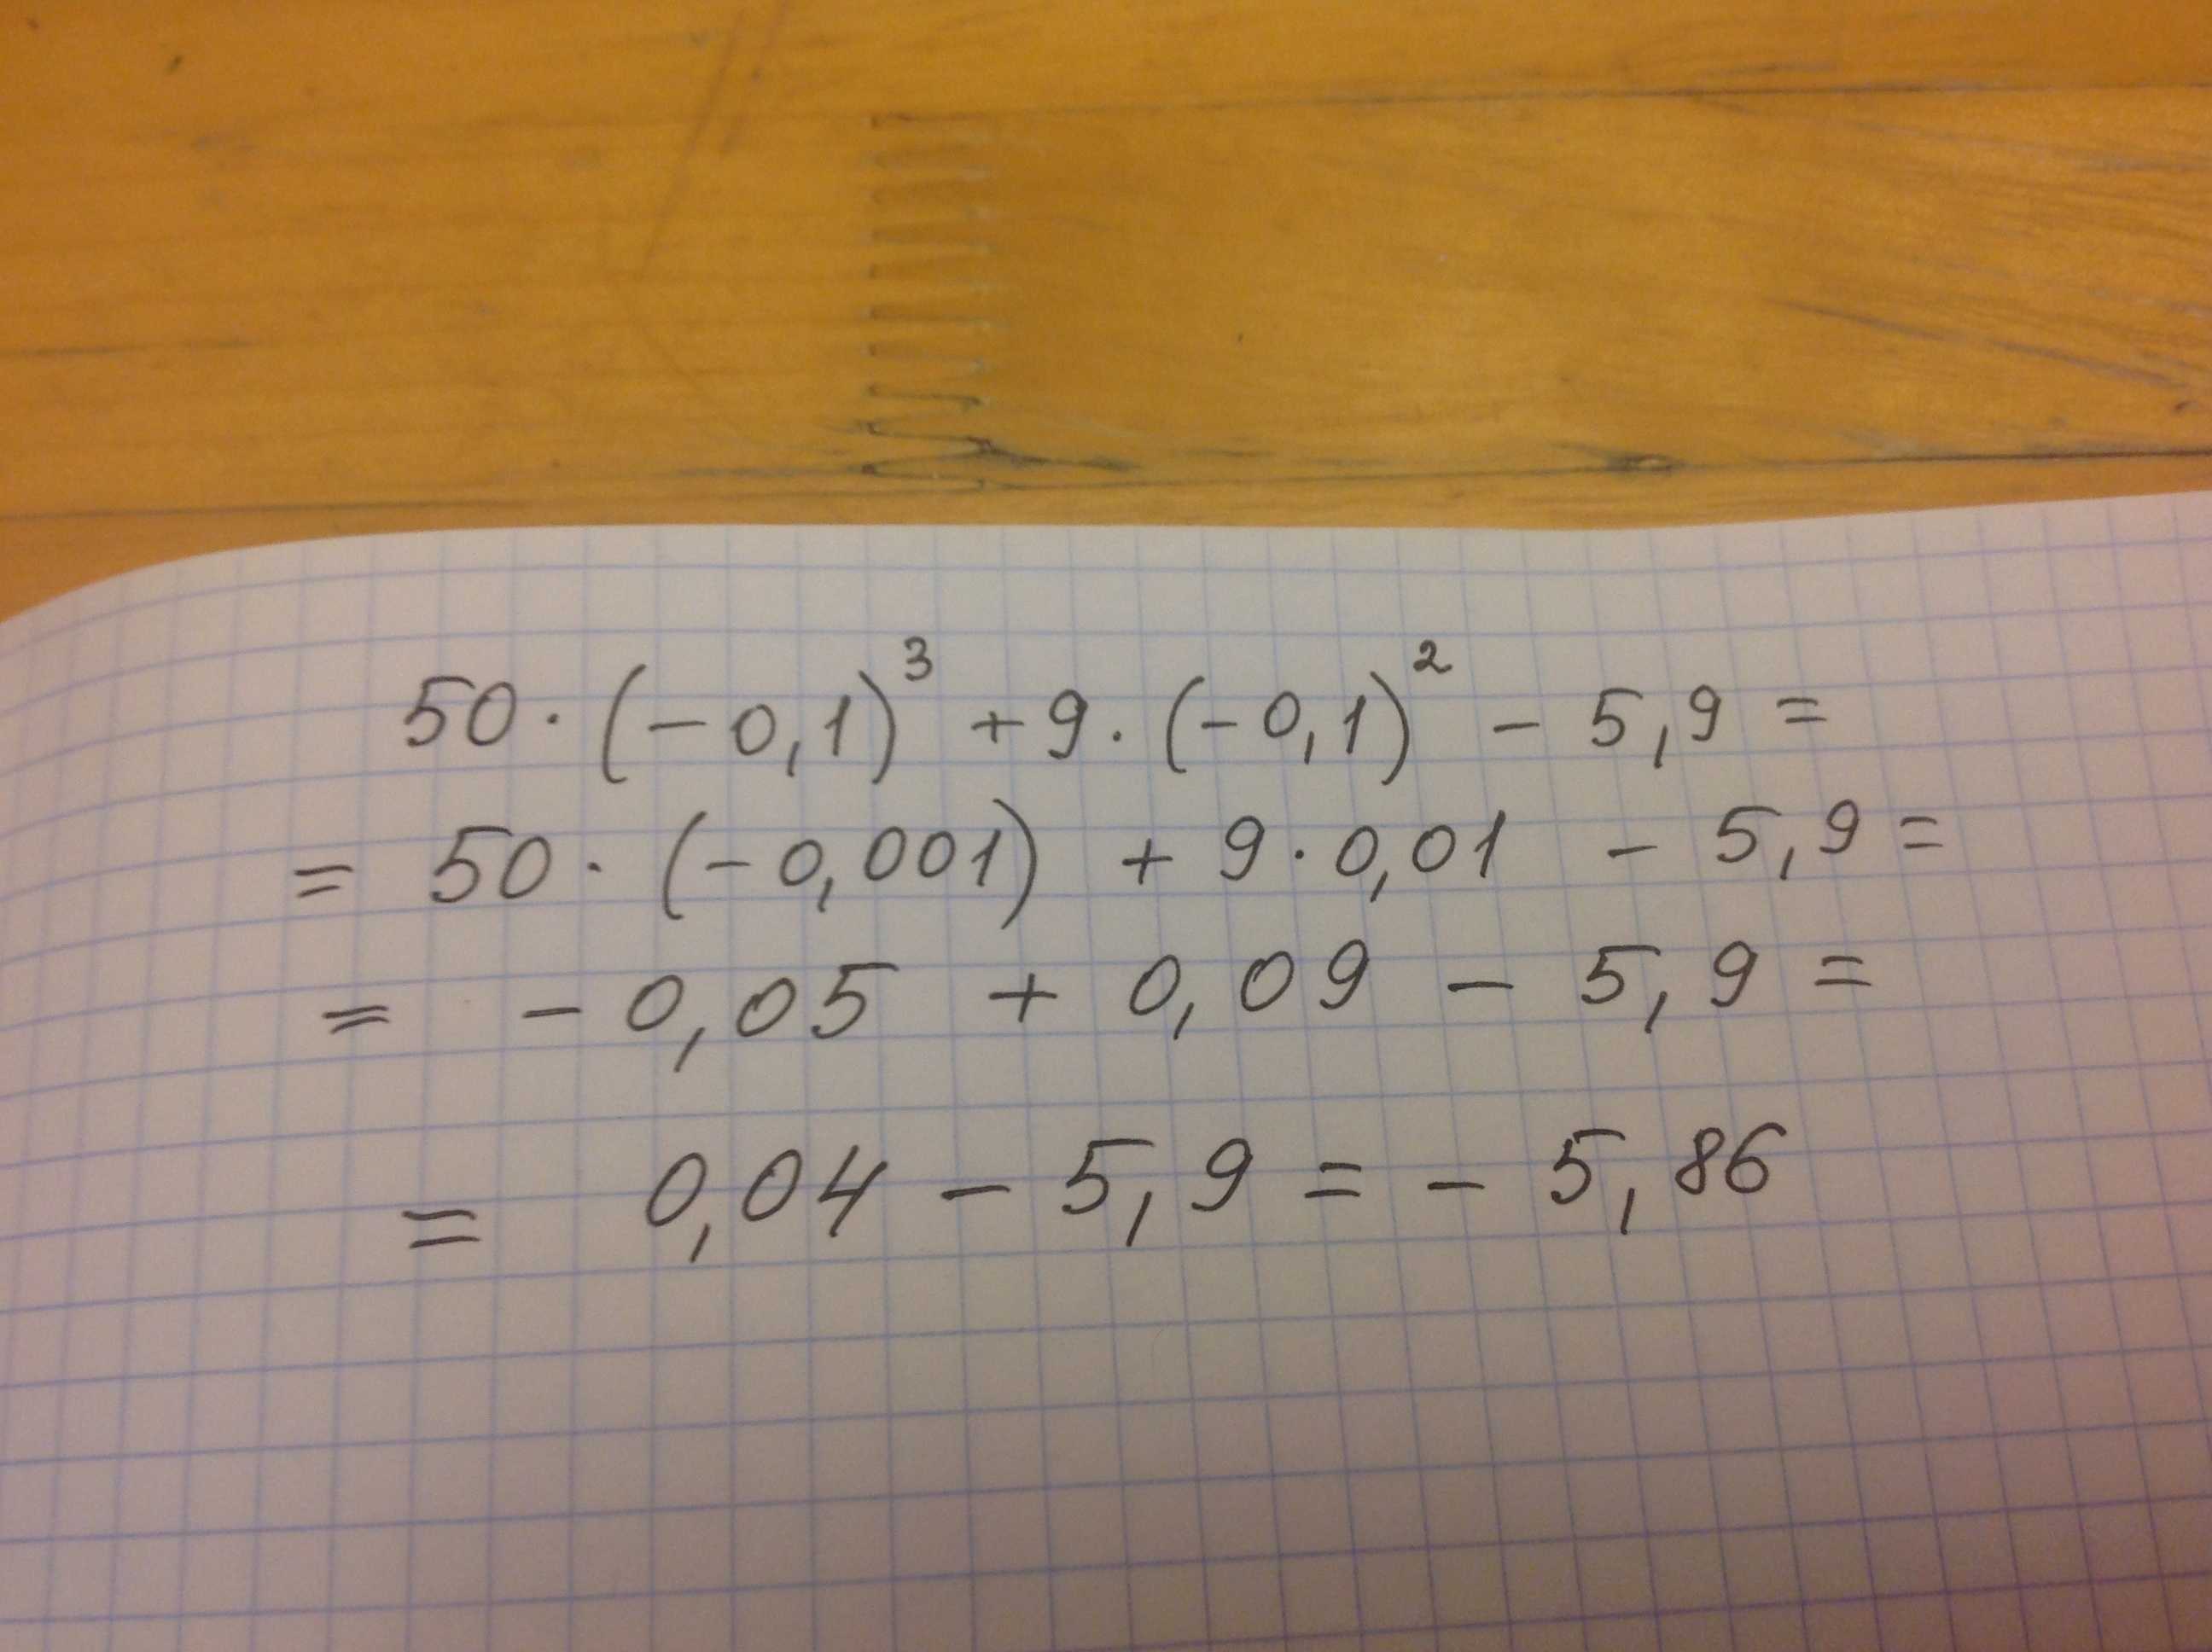 50·(-0,1)³ +9·(-0,1)² - 5,9 =
= 50·(-0,001) + 9·0,01 - 5,9 =
= -0,05 + 0,09 - 5,9 =
= 0,04 - 5,9 = - 5,86